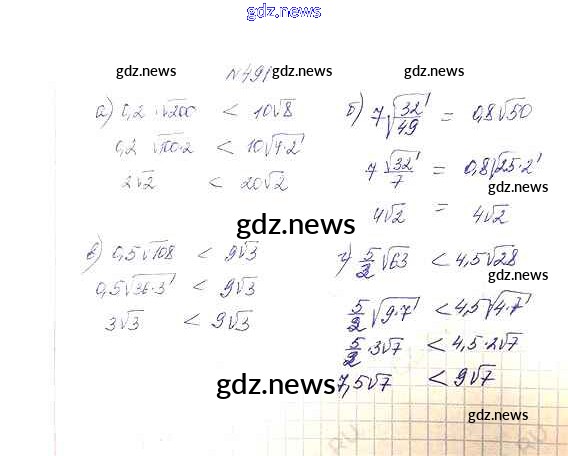 gdz.news
№491
gdz.news gdz.news gdz.news
а) 0,2 · √200 < 10√8
0,2 √100·2 < 10√4·2
2√2 < 20√2
б) 7√32/49 = 0,8√50
7 √32/7 = 0,8√25·2
gdz.news
4√2 = 4√2
gdz.news
в) 0,5√108 < 9√3
0,5√36·3 < 9√3
3√3 < 9√3
г) 5/2 √63 < 4,5√28
gdz.news
5/2 √9·7 < 4,5√4·7
5/2 · 3√7 < 4,5 · 2√7
7,5√7 < 9√7
gdz.news
gdz.news